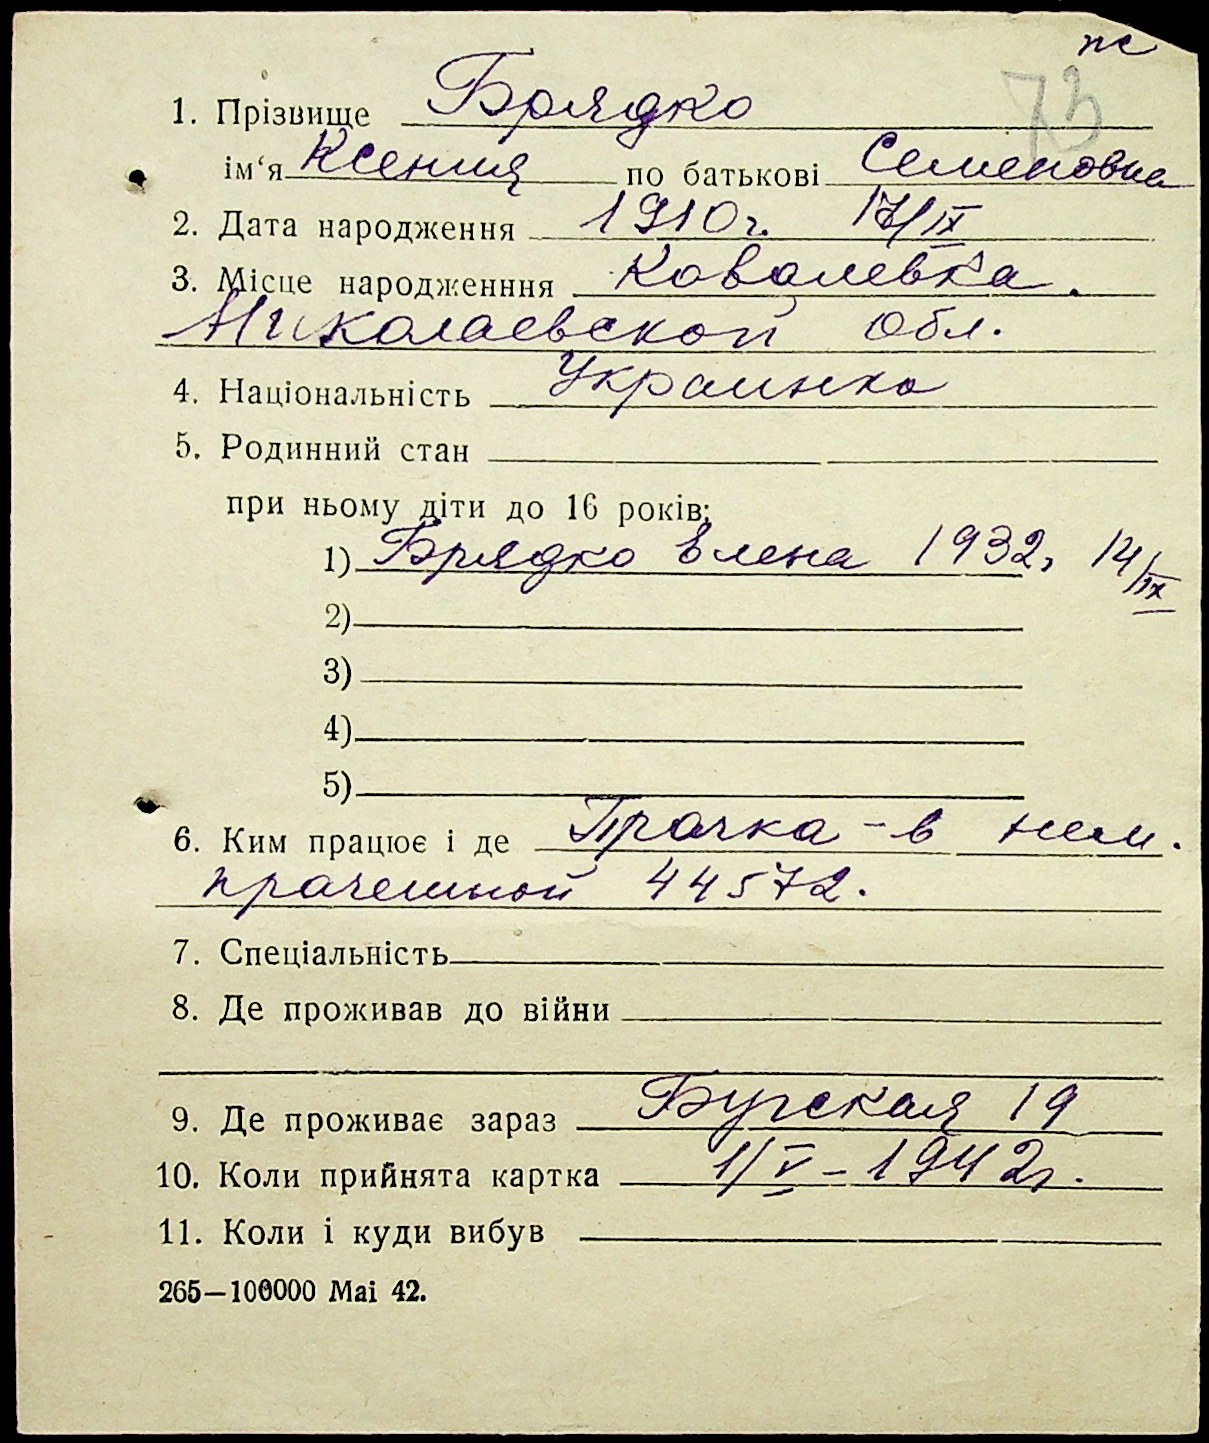 пс
73
1. Прізвище Брядко
ім'я Ксения по батькові Семеновна
2. Дата народження 1910г. 17/IX
3. Місце народженння Ковалевка.
Николаевской обл.
4. Національність Украинка
5. Родинний стан
при ньому діти до 16 років:
1) Брядко Елена 1932, 14/IX
2)
3)
4)
5)
6. Ким працює і де Прачка - в нем.
прачешной 44572.
7. Спеціальність
8. Де проживав до війни
9. Де проживає зараз Бугская 19
10. Коли прийнята картка 1/V - 1942г.
11. Коли і куди вибув
265—100000 Mai 42.